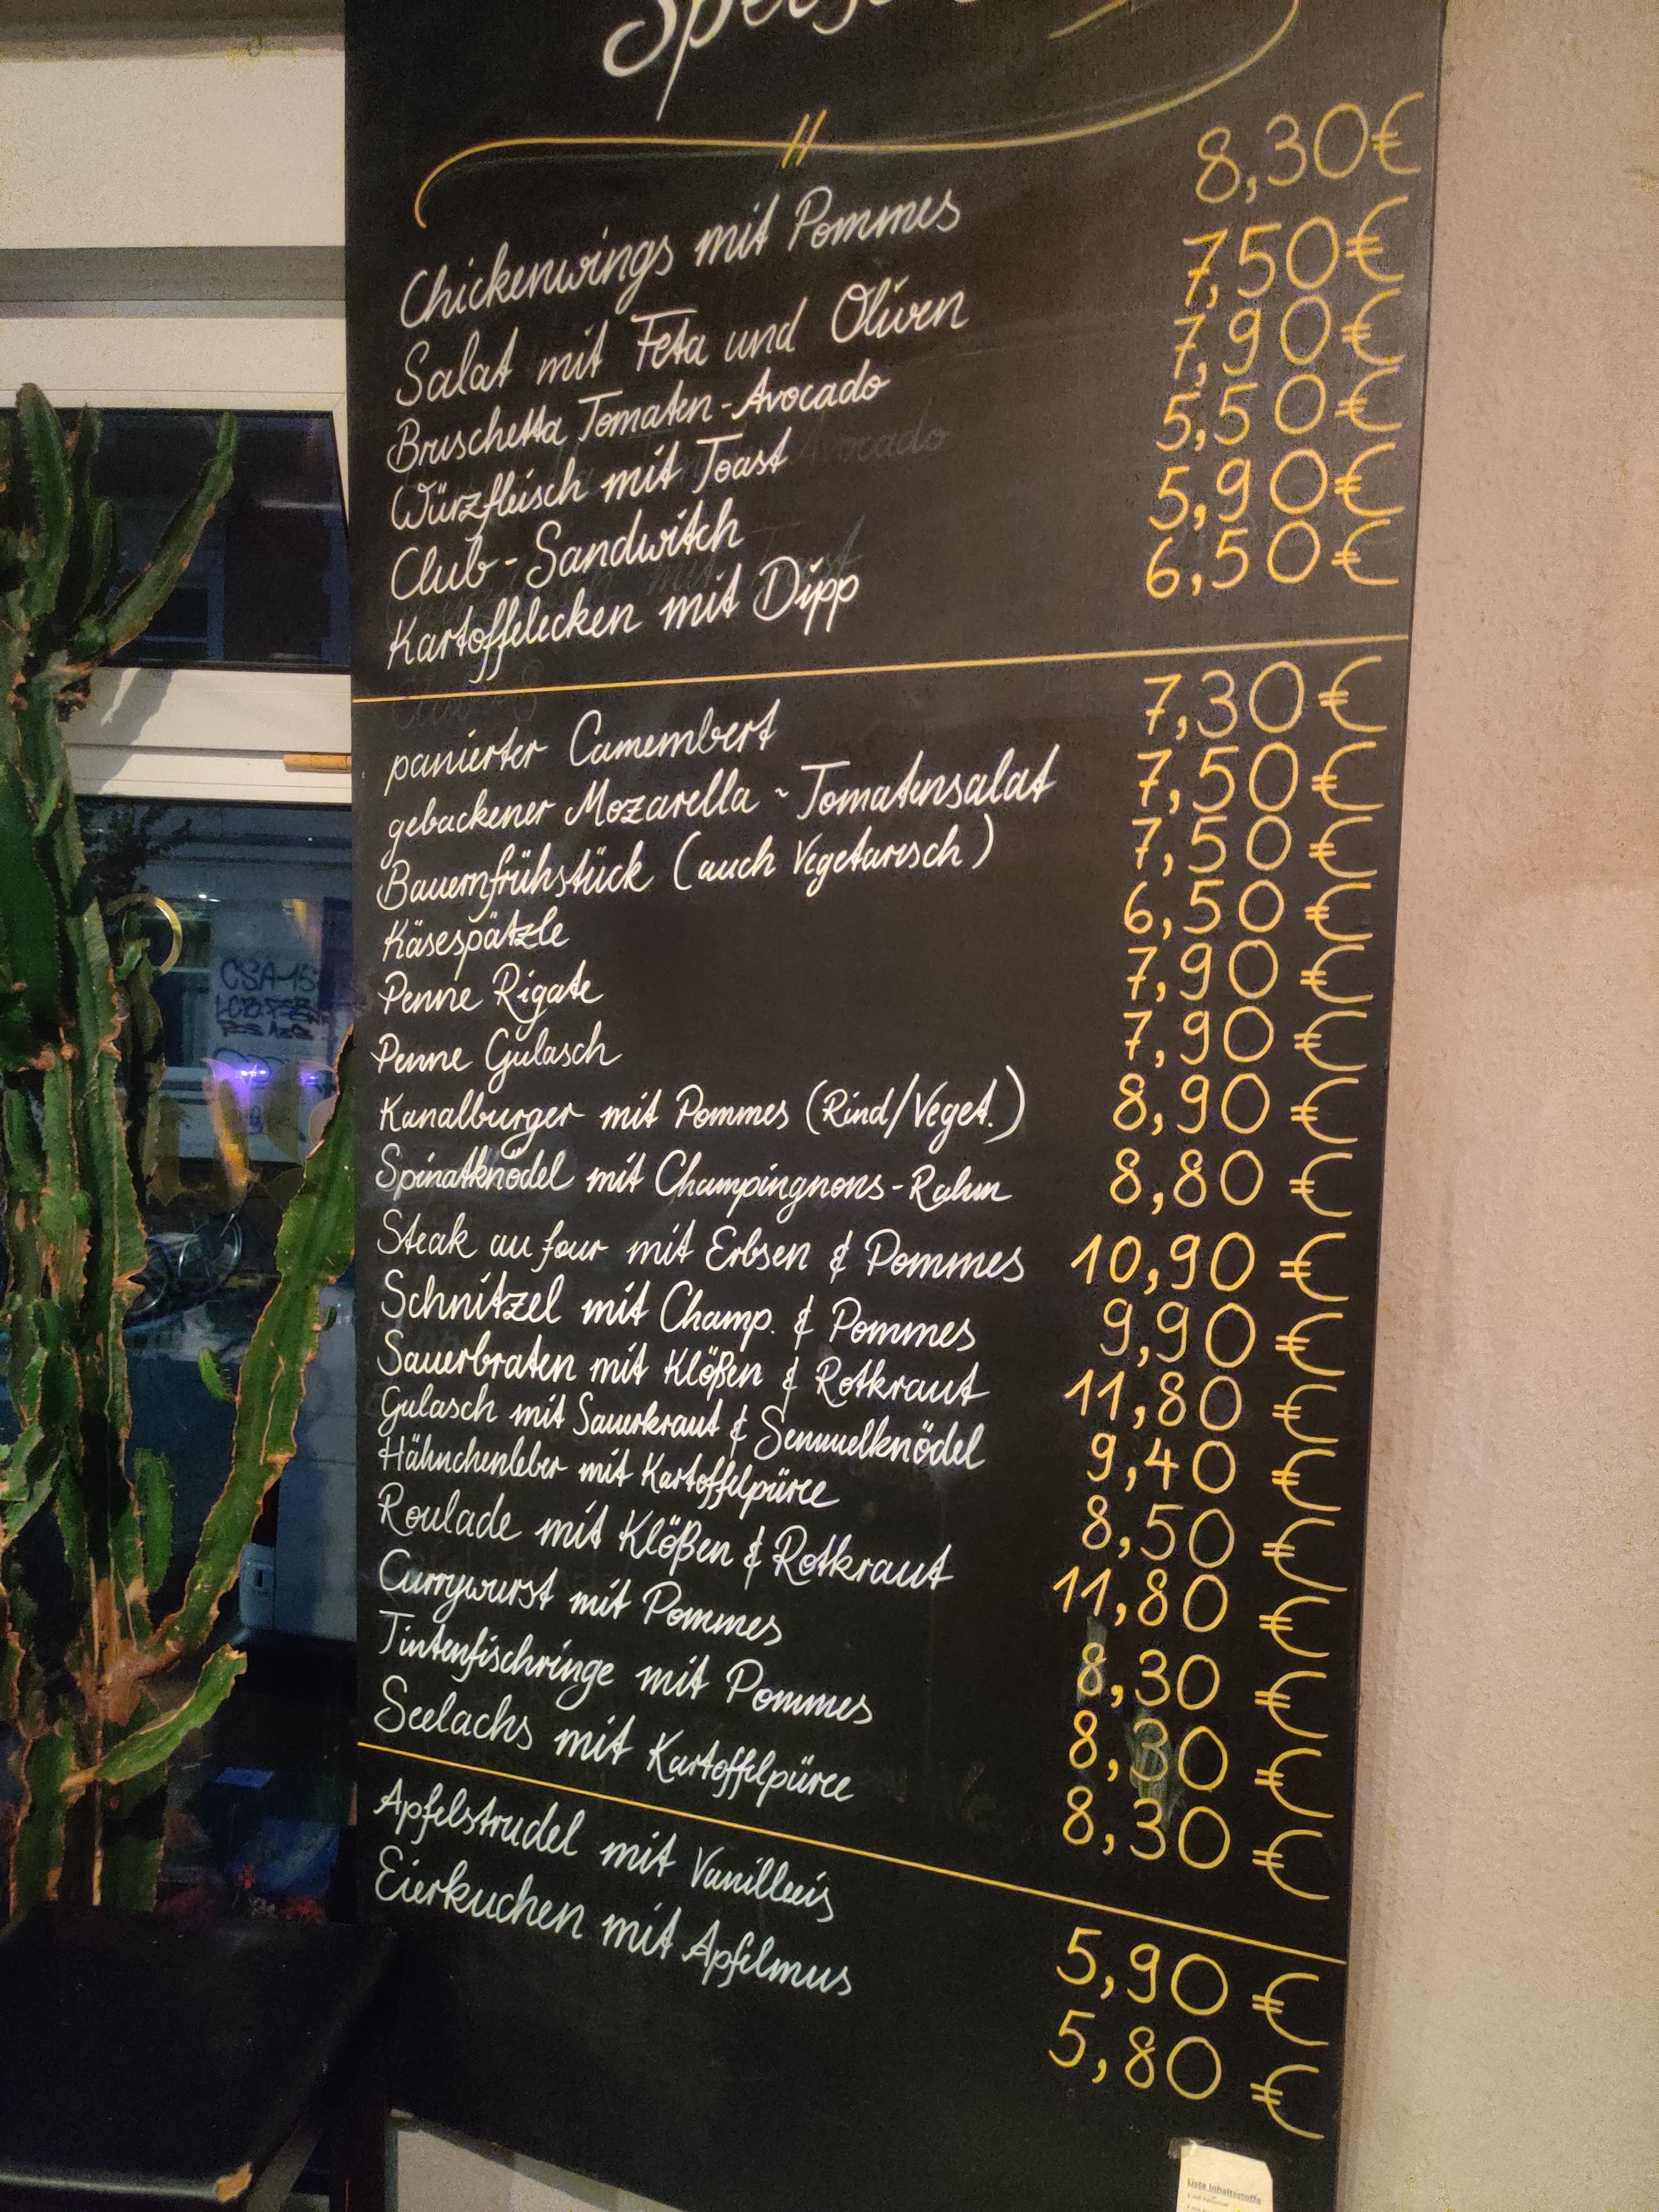 Chickenwings mit Pommes 8,30€
Salat mit Feta und Oliven 7,50€
Bruschetta Tomaten-Avocado 7,90€
Würzfleisch mit Toast 5,50€
Club-Sandwitch 5,90€
Kartoffelecken mit Dipp 6,50€
panierter Camembert 7,30€
gebackener Mozarella - Tomatensalat 7,50€
Bauernfrühstück (auch Vegetarisch) 7,50€
Käsespätzle 6,50€
Penne Rigate 7,90€
Penne Gulasch 7,90€
Kanalburger mit Pommes (Rind/Veget.) 8,90€
Spinatknödel mit Champingnons-Rahm 8,80€
Steak au four mit Erbsen & Pommes 10,90€
Schnitzel mit Champ. & Pommes 9,90€
Sauerbraten mit Klößen & Rotkraut 11,80€
Gulasch mit Sauerkraut & Semmelknödel 9,40€
Hähnchenleber mit Kartoffelpüree 8,50€
Roulade mit Klößen & Rotkraut 11,80€
Currywurst mit Pommes 8,30€
Tintenfischringe mit Pommes 8,30€
Seelachs mit Kartoffelpüree 8,30€
Apfelstrudel mit Vanilleeis 5,90€
Eierkuchen mit Apfelmus 5,80€
Liste Inhaltsstoffe